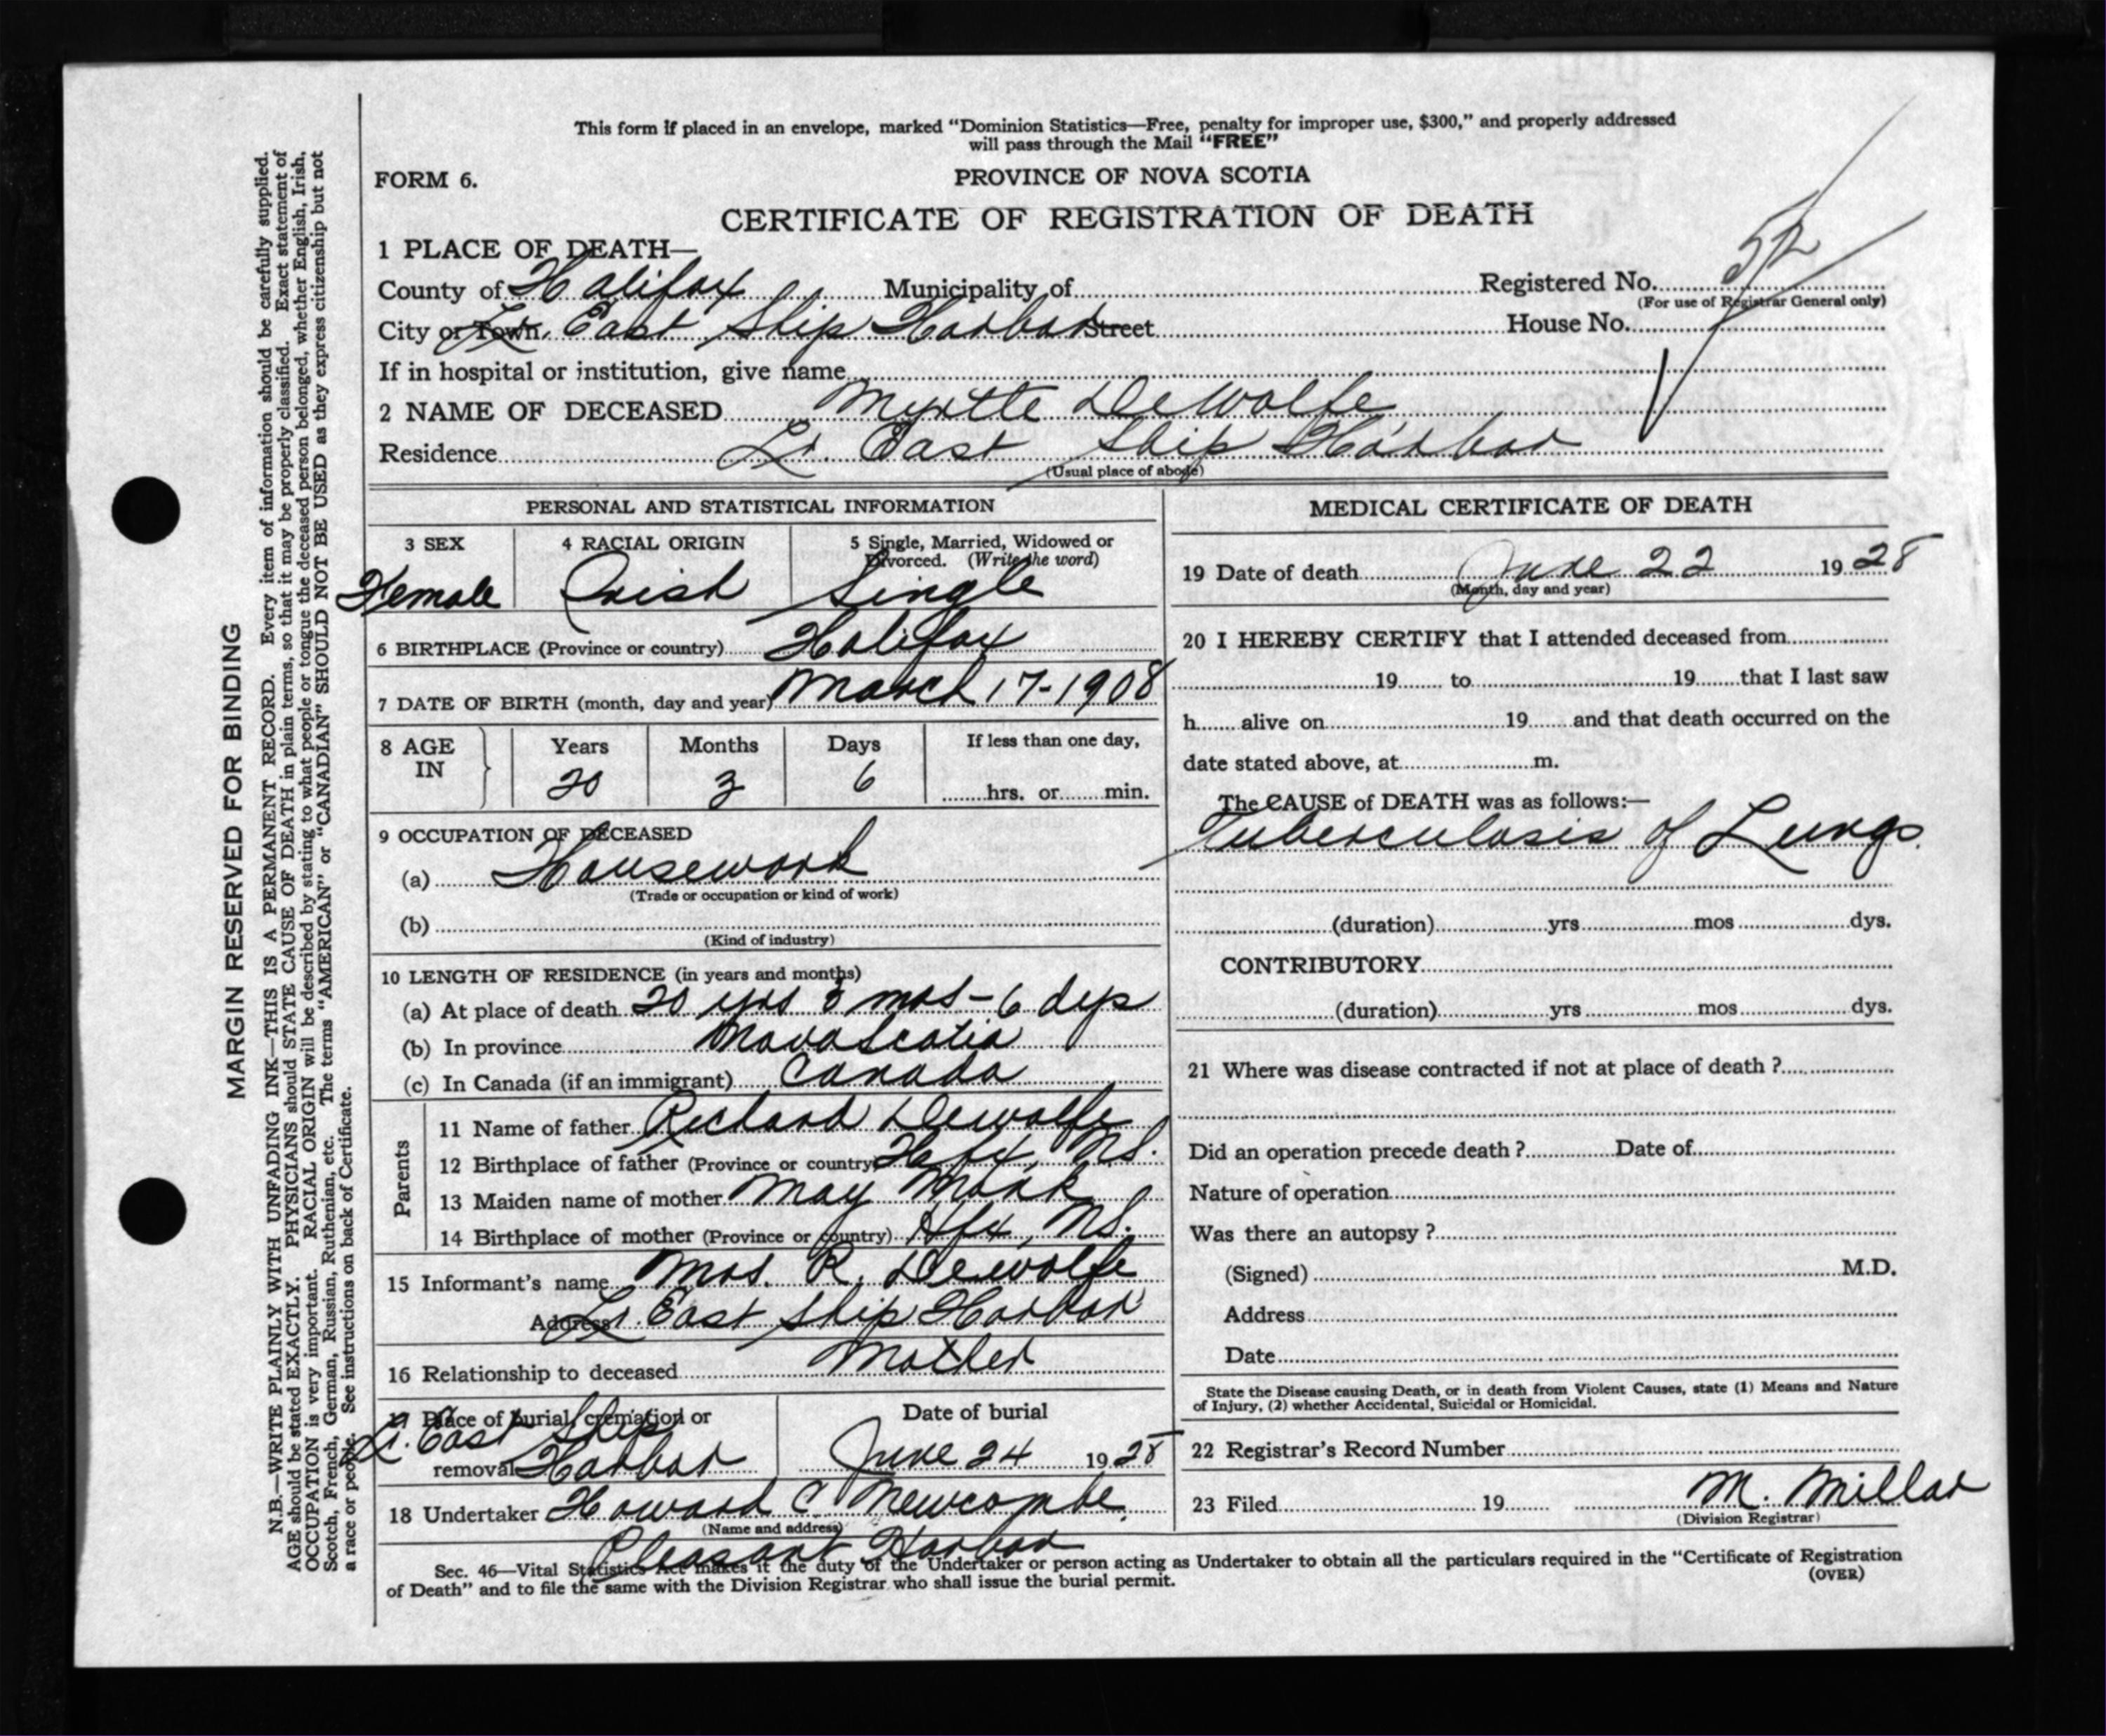 This form if placed in an envelope, marked "Dominion Statistics—Free, penalty for improper use, $300," and properly addressed
will pass through the Mail "FREE"
FORM 6.
PROVINCE OF NOVA SCOTIA
CERTIFICATE OF REGISTRATION OF DEATH
1 PLACE OF DEATH—
County of Halifax Municipality of Registered No.
(For use of Registrar General only)
City or Town Lr. East Ship Harbor Street House No.
If in hospital or institution, give name
2 NAME OF DECEASED Myrtle DeWolfe
Residence Lr. East Ship Harbor
(Usual place of abode)
PERSONAL AND STATISTICAL INFORMATION
3 SEX 4 RACIAL ORIGIN 5 Single, Married, Widowed or
Divorced. (Write the word)
Female Irish Single
6 BIRTHPLACE (Province or country) Halifax
7 DATE OF BIRTH (month, day and year) March 17-1908
8 AGE Years Months Days If less than one day,
IN 20 3 6 hrs. or min.
9 OCCUPATION OF DECEASED
(a) Housework
(Trade or occupation or kind of work)
(b)
(Kind of industry)
10 LENGTH OF RESIDENCE (in years and months)
(a) At place of death 20 yrs 3 mos - 6 dys
(b) In province Nova Scotia
(c) In Canada (if an immigrant) Canada
Parents
11 Name of father Richard Dewolfe
12 Birthplace of father (Province or country) Hfx, NS.
13 Maiden name of mother May Monk
14 Birthplace of mother (Province or country) Hfx, NS.
15 Informant's name Mrs. R. Dewolfe
Address Lr. East Ship Harbor
16 Relationship to deceased Mother
17 Place of burial, cremation or Date of burial
Lr. East Ship
removal Harbor June 24 1928
18 Undertaker Howard C. Newcombe
(Name and address)
Pleasant Harbor
MEDICAL CERTIFICATE OF DEATH
19 Date of death June 22 1928
(Month, day and year)
20 I HEREBY CERTIFY that I attended deceased from
19 to 19 that I last saw
h alive on 19 and that death occurred on the
date stated above, at m.
The CAUSE of DEATH was as follows:—
Tuberculosis of Lungs.
(duration) yrs mos dys.
CONTRIBUTORY
(duration) yrs mos dys.
21 Where was disease contracted if not at place of death ?
Did an operation precede death ? Date of
Nature of operation
Was there an autopsy ?
(Signed) M.D.
Address
Date
State the Disease causing Death, or in death from Violent Causes, state (1) Means and Nature
of Injury, (2) whether Accidental, Suicidal or Homicidal.
22 Registrar's Record Number
23 Filed 19 M. Millar
(Division Registrar)
Sec. 46—Vital Statistics Act makes it the duty of the Undertaker or person acting as Undertaker to obtain all the particulars required in the "Certificate of Registration
of Death" and to file the same with the Division Registrar who shall issue the burial permit.
(OVER)
MARGIN RESERVED FOR BINDING
N.B.—WRITE PLAINLY WITH UNFADING INK—THIS IS A PERMANENT RECORD. Every item of information should be carefully supplied.
AGE should be stated EXACTLY. PHYSICIANS should STATE CAUSE OF DEATH in plain terms, so that it may be properly classified. Exact statement of
OCCUPATION is very important. RACIAL ORIGIN will be described by stating to what people or tongue the deceased person belonged, whether English, Irish,
Scotch, French, German, Russian, Ruthenian, etc. The terms "AMERICAN" or "CANADIAN" SHOULD NOT BE USED as they express citizenship but not
a race or people. See instructions on back of Certificate.